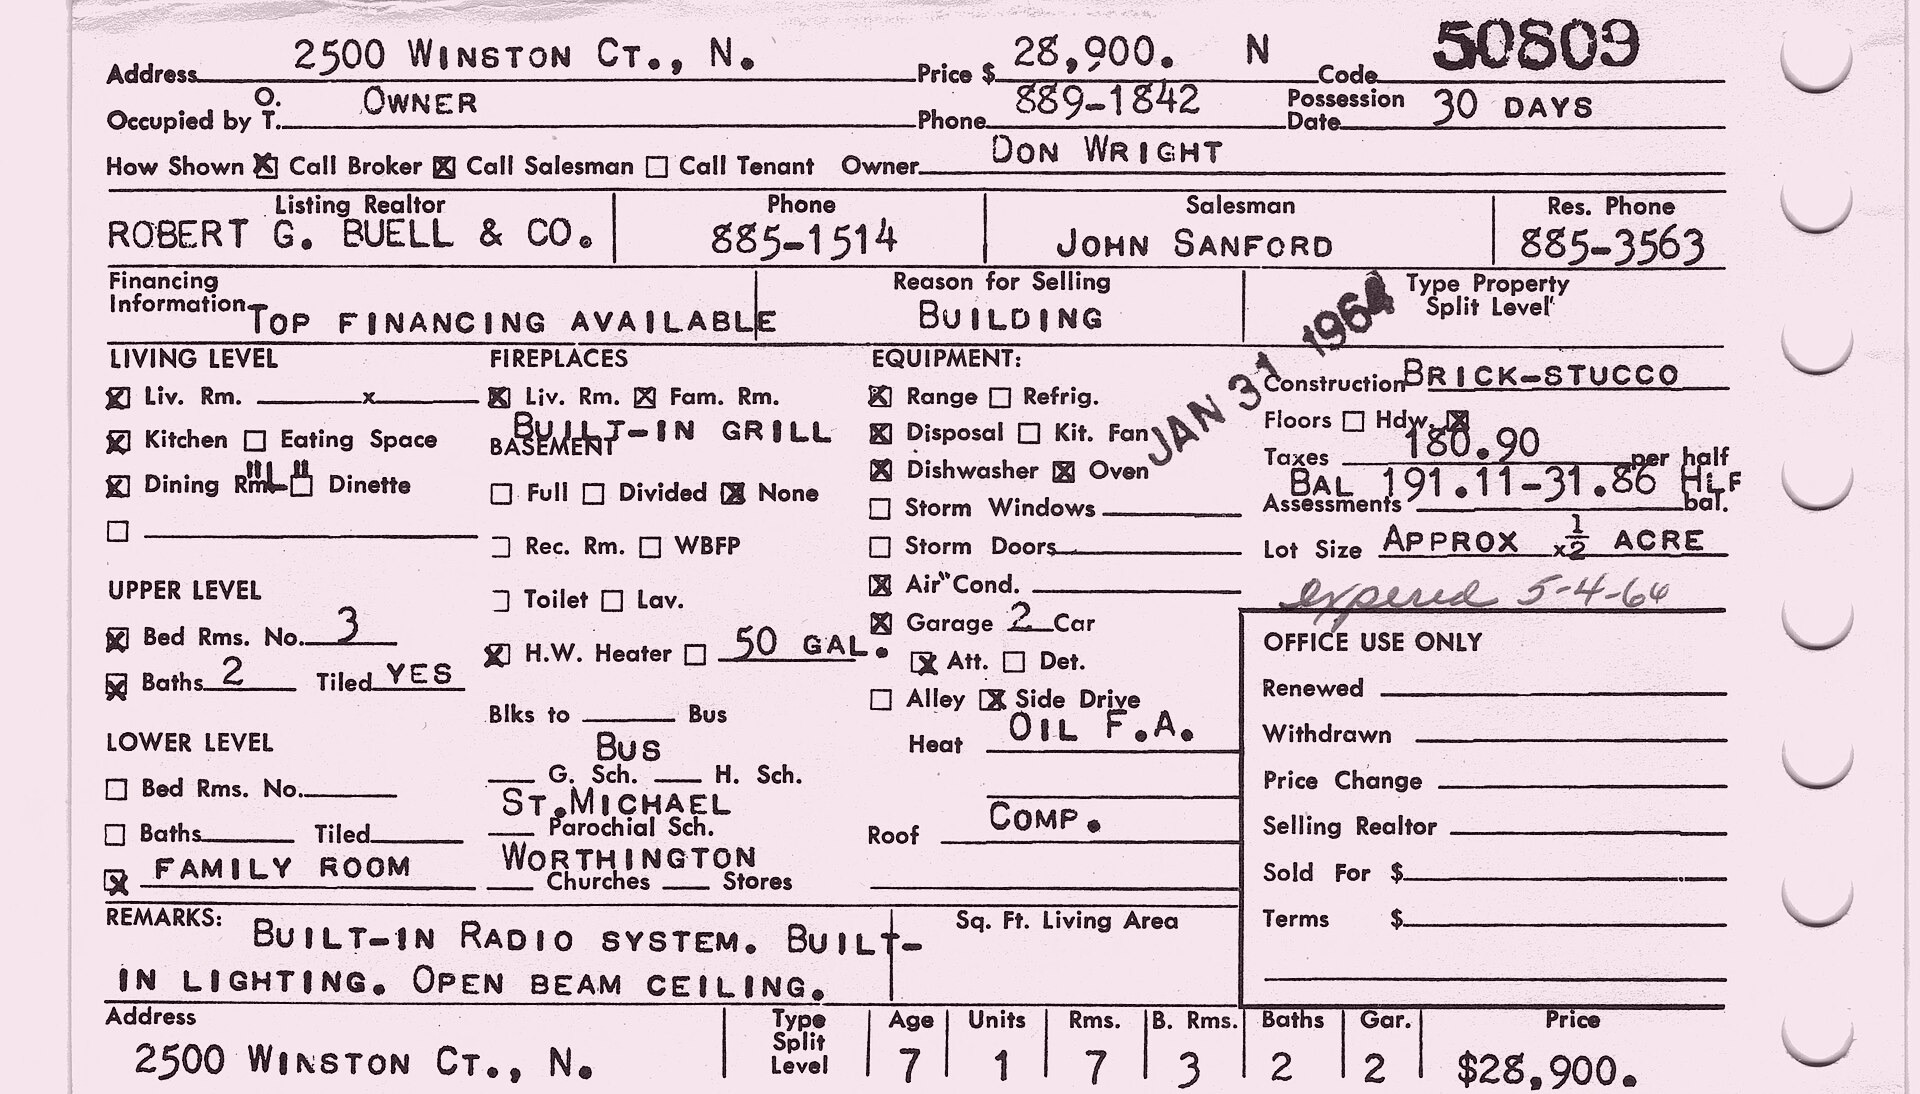 Address 2500 WINSTON CT., N. Price $ 28,900. N Code 50809
Occupied by O. T. OWNER Phone 889-1842 Possession Date 30 DAYS
How Shown ☒ Call Broker ☒ Call Salesman ☐ Call Tenant Owner DON WRIGHT
Listing Realtor Phone Salesman Res. Phone
ROBERT G. BUELL & CO. 885-1514 JOHN SANFORD 885-3563
Financing Information TOP FINANCING AVAILABLE
Reason for Selling
BUILDING
Type Property
Split Level
JAN 31 1964
LIVING LEVEL
☒ Liv. Rm. x
☒ Kitchen ☐ Eating Space
☒ Dining Rm. "L" ☐ Dinette
☐
UPPER LEVEL
☒ Bed Rms. No. 3
☒ Baths 2 Tiled YES
LOWER LEVEL
☐ Bed Rms. No.
☐ Baths Tiled
☒ FAMILY ROOM
FIREPLACES
☒ Liv. Rm. ☒ Fam. Rm.
BUILT-IN GRILL
BASEMENT
☐ Full ☐ Divided ☒ None
☐ Rec. Rm. ☐ WBFP
☐ Toilet ☐ Lav.
☒ H.W. Heater ☐ 50 GAL.
Blks to Bus
BUS
G. Sch. H. Sch.
ST.MICHAEL
Parochial Sch.
WORTHINGTON
Churches Stores
EQUIPMENT:
☒ Range ☐ Refrig.
☒ Disposal ☐ Kit. Fan
☒ Dishwasher ☒ Oven
☐ Storm Windows
☐ Storm Doors
☒ Air Cond.
☒ Garage 2 Car
☒ Att. ☐ Det.
☐ Alley ☒ Side Drive
Heat OIL F.A.
Roof COMP.
Construction BRICK-STUCCO
Floors ☐ Hdw. ☒
Taxes 180.90 per half
BAL 191.11-31.86 HLF
Assessments bal.
Lot Size APPROX x 1/2 ACRE
expered 5-4-64
OFFICE USE ONLY
Renewed
Withdrawn
Price Change
Selling Realtor
Sold For $
Terms $
REMARKS: BUILT-IN RADIO SYSTEM. BUILT-
IN LIGHTING. OPEN BEAM CEILING.
Sq. Ft. Living Area
Address Type Split Level Age Units Rms. B. Rms. Baths Gar. Price
2500 WINSTON CT., N. 7 1 7 3 2 2 $28,900.